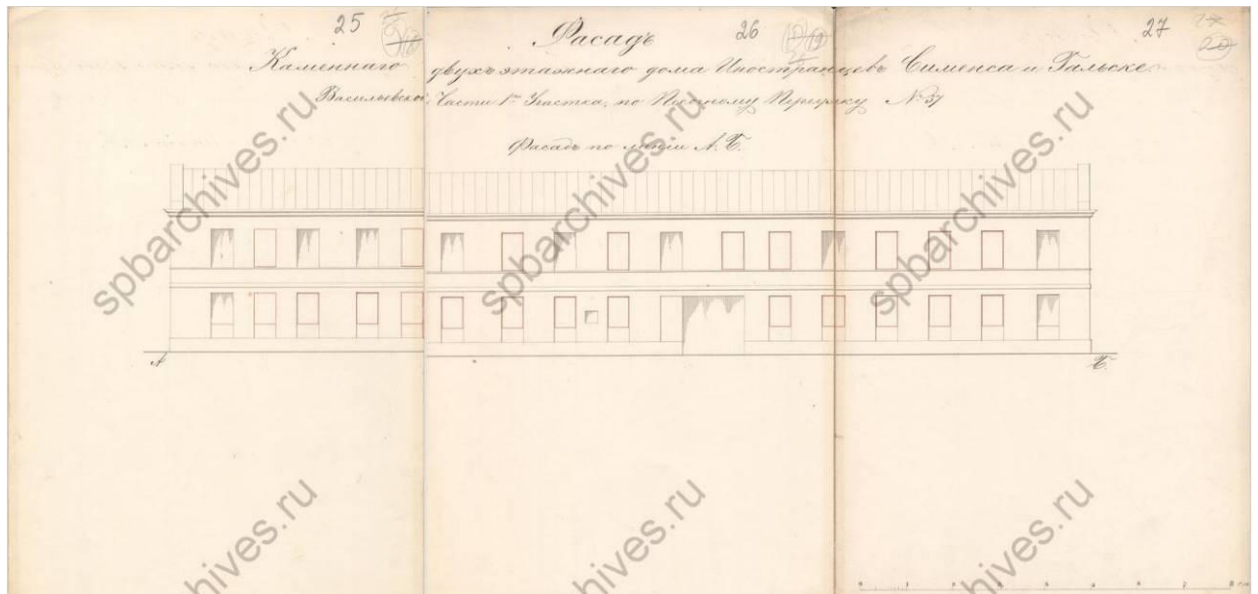 25
26
27
Фасадъ
Каменнаго двухъэтажнаго дома Иностранцевъ Сименса и Гальске
Васильевской Части 1го Участка, по Переулку № 37
Фасадъ по линіи А. Б.
А
Б.
spbarchives.ru
spbarchives.ru
spbarchives.ru
hives.ru
hives.ru
hives.ru